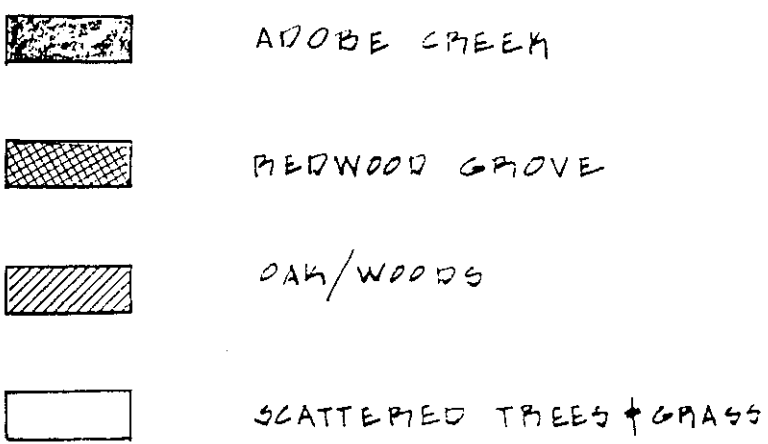 ADOBE CREEK
REDWOOD GROVE
OAK/WOODS
SCATTERED TREES & GRASS